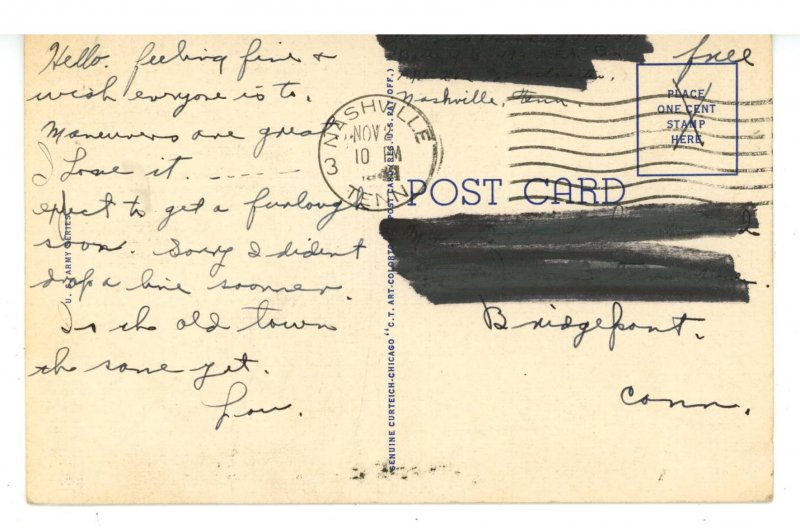 Hello. feeling fine &
wish everyone is to.
Maneuvers are great
I Love it. - - - - - -
expect to get a furlough
soon. Sorry I dident
drop a line sooner.
Is the old town
the same yet.
Lou.
U. S. ARMY SERIES
GENUINE CURTEICH-CHICAGO "C.T. ART-COLORTO POST CARD (REG. U.S. PAT. OFF.)
Nashville, Tenn.
free
PLACE
ONE CENT
STAMP
HERE
NASHVILLE
NOV
10 PM
TENN
3
POST CARD
Bridgeport.
Conn.